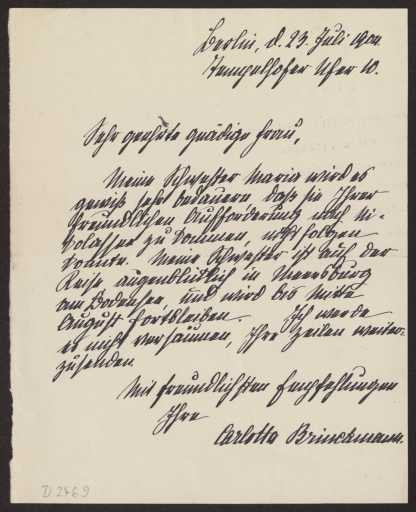 Berlin, d. 23. Juli 1902.
Tempelhofer Ufer 10.
Sehr geehrte gnädige Frau,
Meine Schwester Maria wird es
gewiß sehr bedauern, daß sie Ihrer
freundlichen Aufforderung nach
zu kommen, nicht folgen
konnte. Meine Schwester ist auf der
Reise augenblicklich in Meersburg
am Bodensee, und wird bis Mitte
August fortbleiben. Ich werde
es nicht versäumen, Ihre Zeilen weiter-
zusenden.
Mit freundlichsten Empfehlungen
Ihre
Carlotta Brinckmann.
D 2469